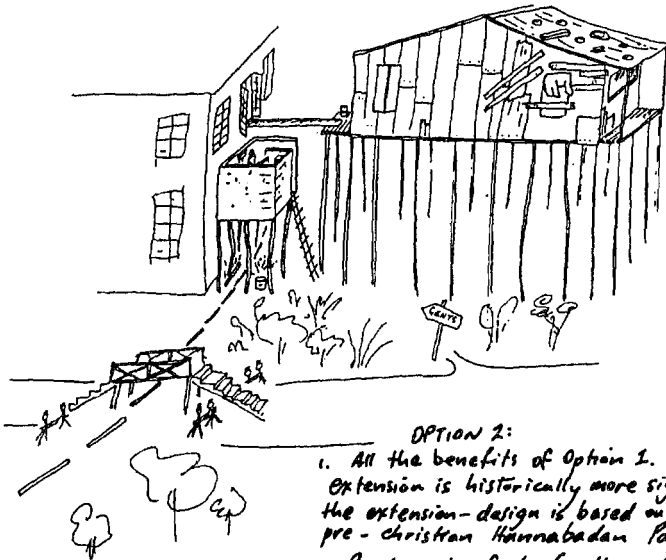 GENTS
OPTION 2:
1. All the benefits of Option 1.
extension is historically more
the extension-design is based
pre-christian Hannabadan